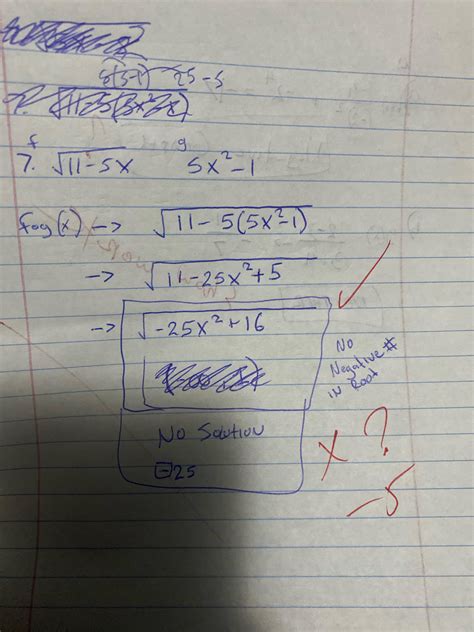 5(5-1) 25-5
f g
7. √11-5x 5x²-1
fog(x) -> √11-5(5x²-1)
-> √11-25x²+5
-> √-25x²+16
No
Negative #
in Root
No Solution
-25
x ?
-5